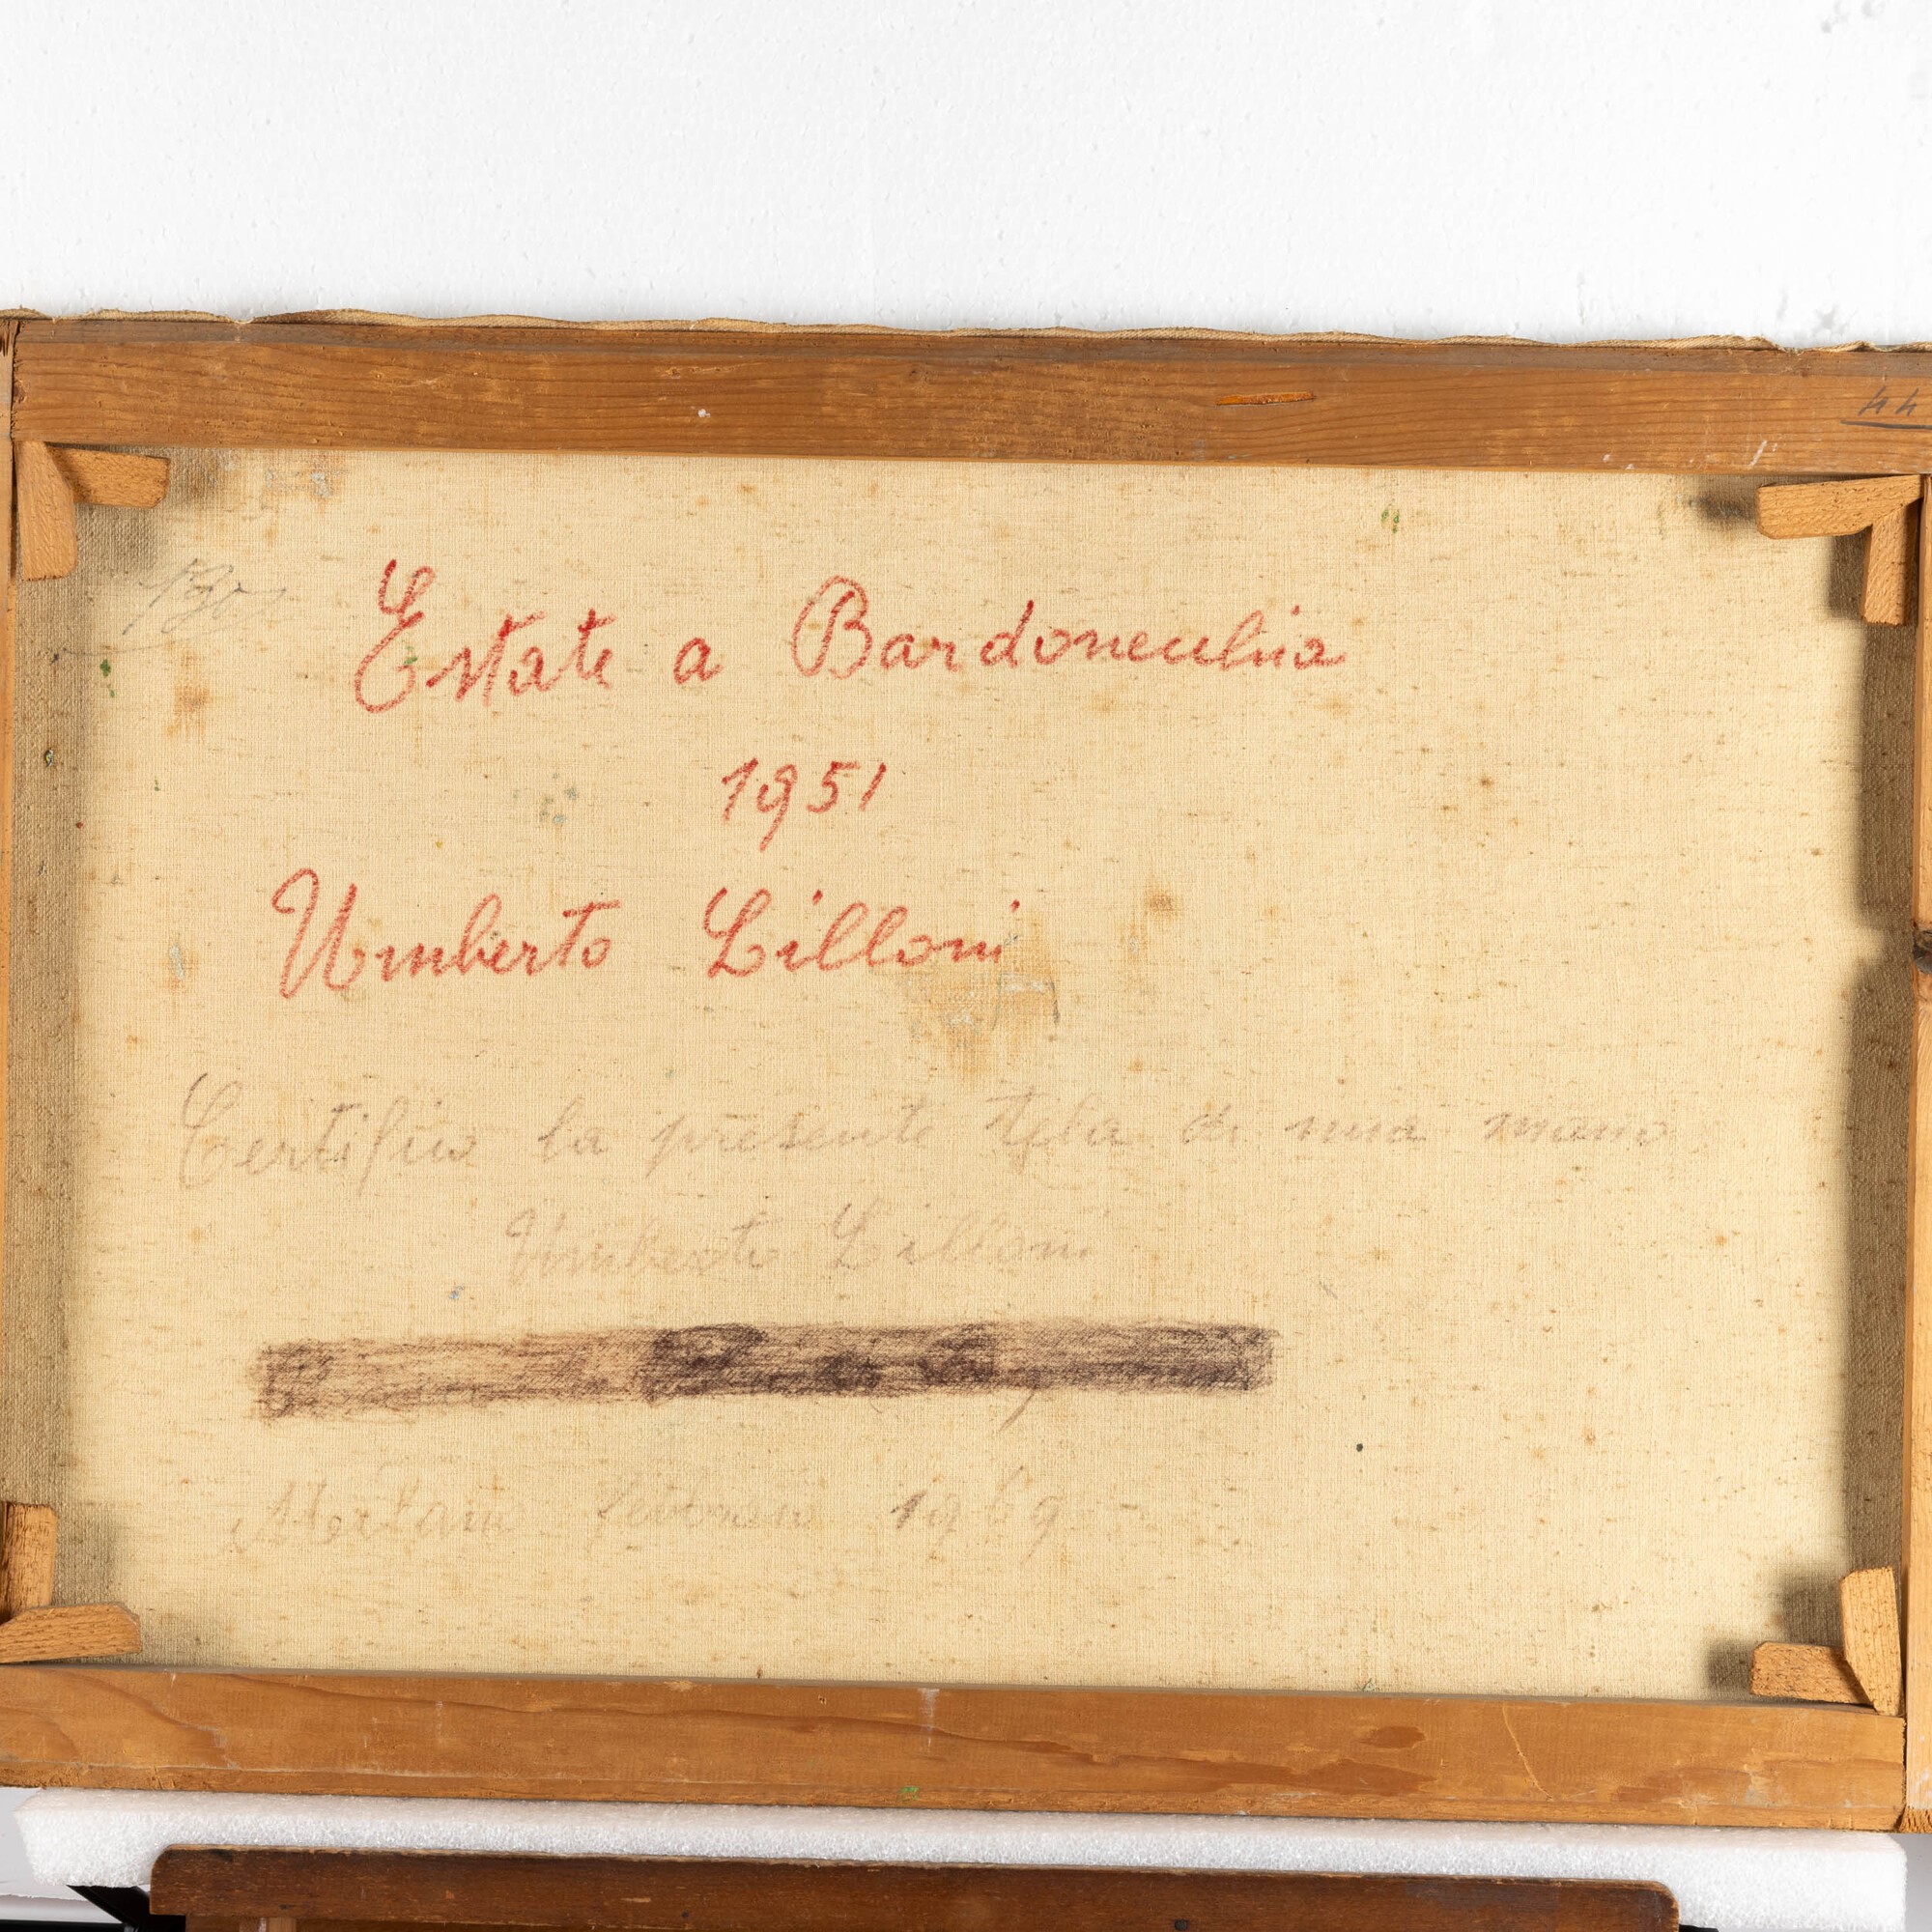 44
Estate a Bardonecchia
1951
Umberto Lilloni
Certifico la presente tela di mia mano
Umberto Lilloni
1969